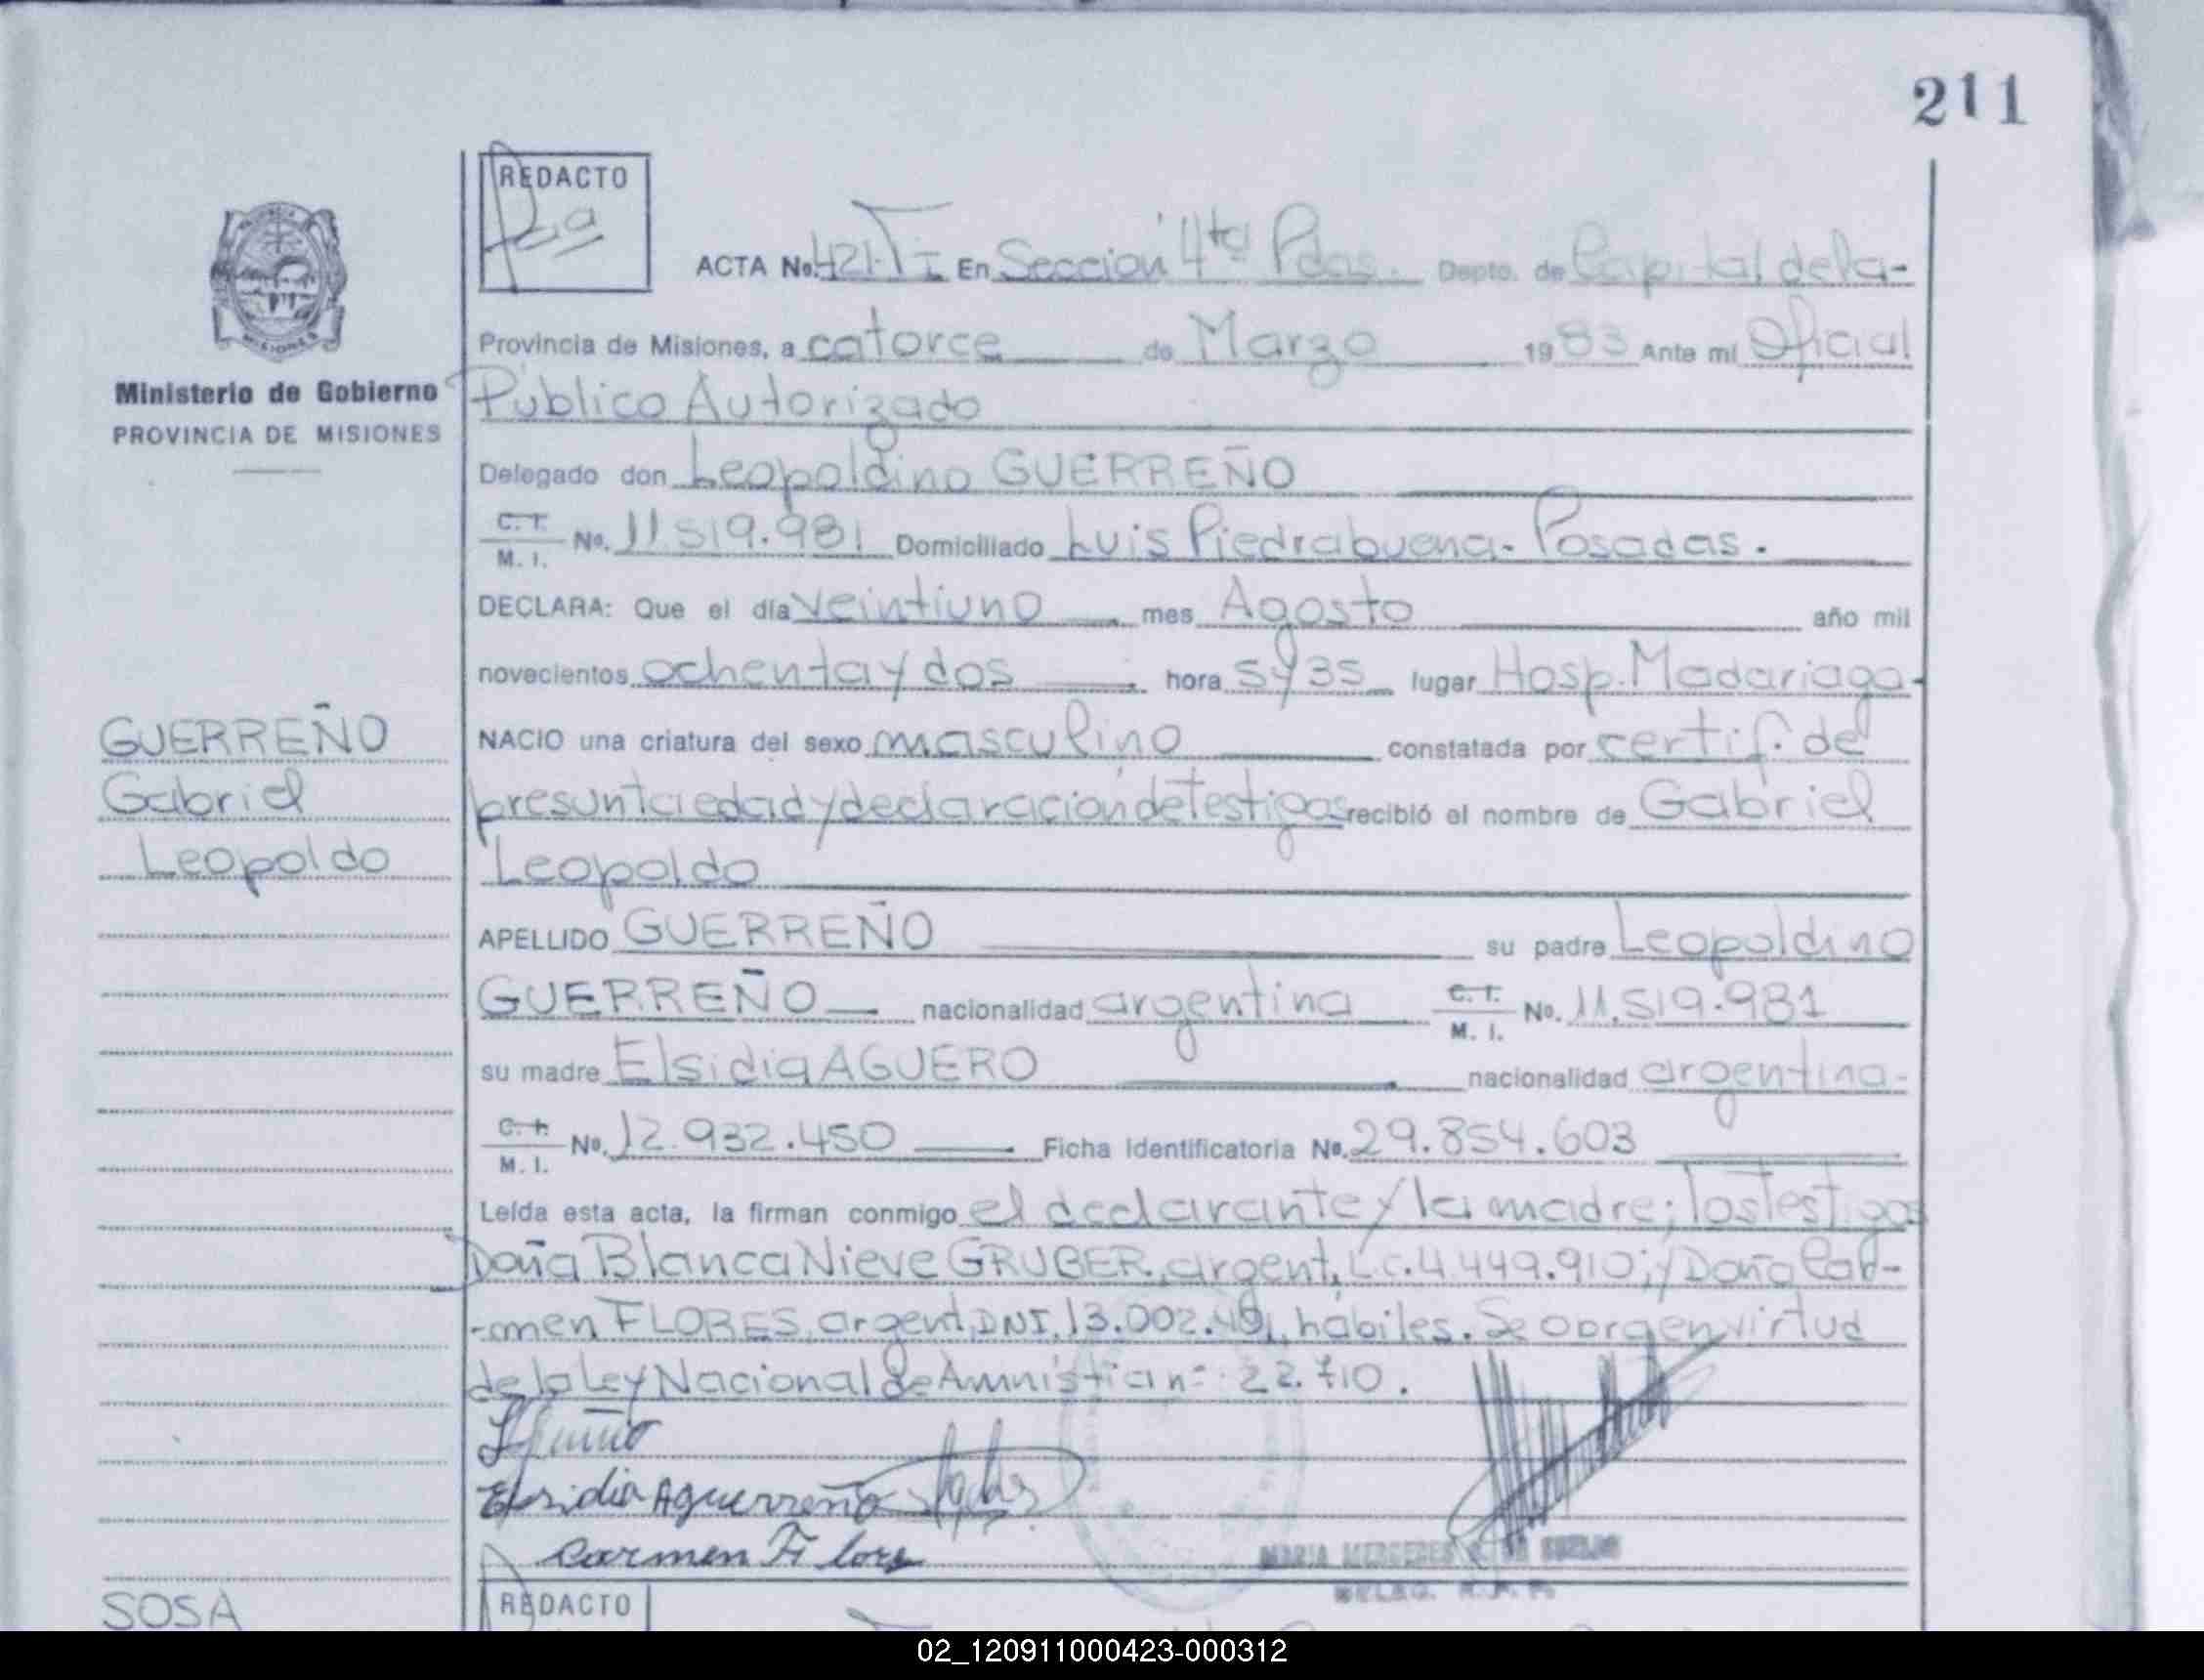 211
REDACTO
ACTA No. 421-TI En Sección 4ta Pdas. Depto. de Capital de la-
Provincia de Misiones, a catorce de Marzo 1983 Ante mi Oficial
Ministerio de Gobierno
PROVINCIA DE MISIONES
Público Autorizado
Delegado don Leopoldino GUERREÑO
C.I. M. I. No. 11.519.981 Domiciliado Luis Piedrabuena - Posadas.
DECLARA: Que el día veintiuno mes Agosto año mil
novecientos ochenta y dos hora 5 y 35 lugar Hosp. Madariaga-
GUERREÑO
NACIO una criatura del sexo masculino constatada por certif. de
Gabriel
presunta edad y declaración de Testigos recibió el nombre de Gabriel
Leopoldo
Leopoldo
APELLIDO GUERREÑO su padre Leopoldino
GUERREÑO nacionalidad argentina C.I. M. I. No. 11.519.981
su madre Elsidia AGUERO nacionalidad argentina-
C.I. M. I. No. 12.932.450 Ficha Identificatoria No. 29.854.603
Leída esta acta, la firman conmigo el declarante y la madre; los Testigos
Doña Blanca Nieve GRUBER, argent, L.c. 4.449.910; y Doña Car-
-men FLORES, argent, DNI. 13.002.491, hábiles. Se obra en virtud
de la Ley Nacional de Amnistia n= 22.710.
Elsidia Aguerreño
Carmen Flores
MARIA MERCEDES
DELEG. R. P. P.
SOSA
REDACTO
02_120911000423-000312